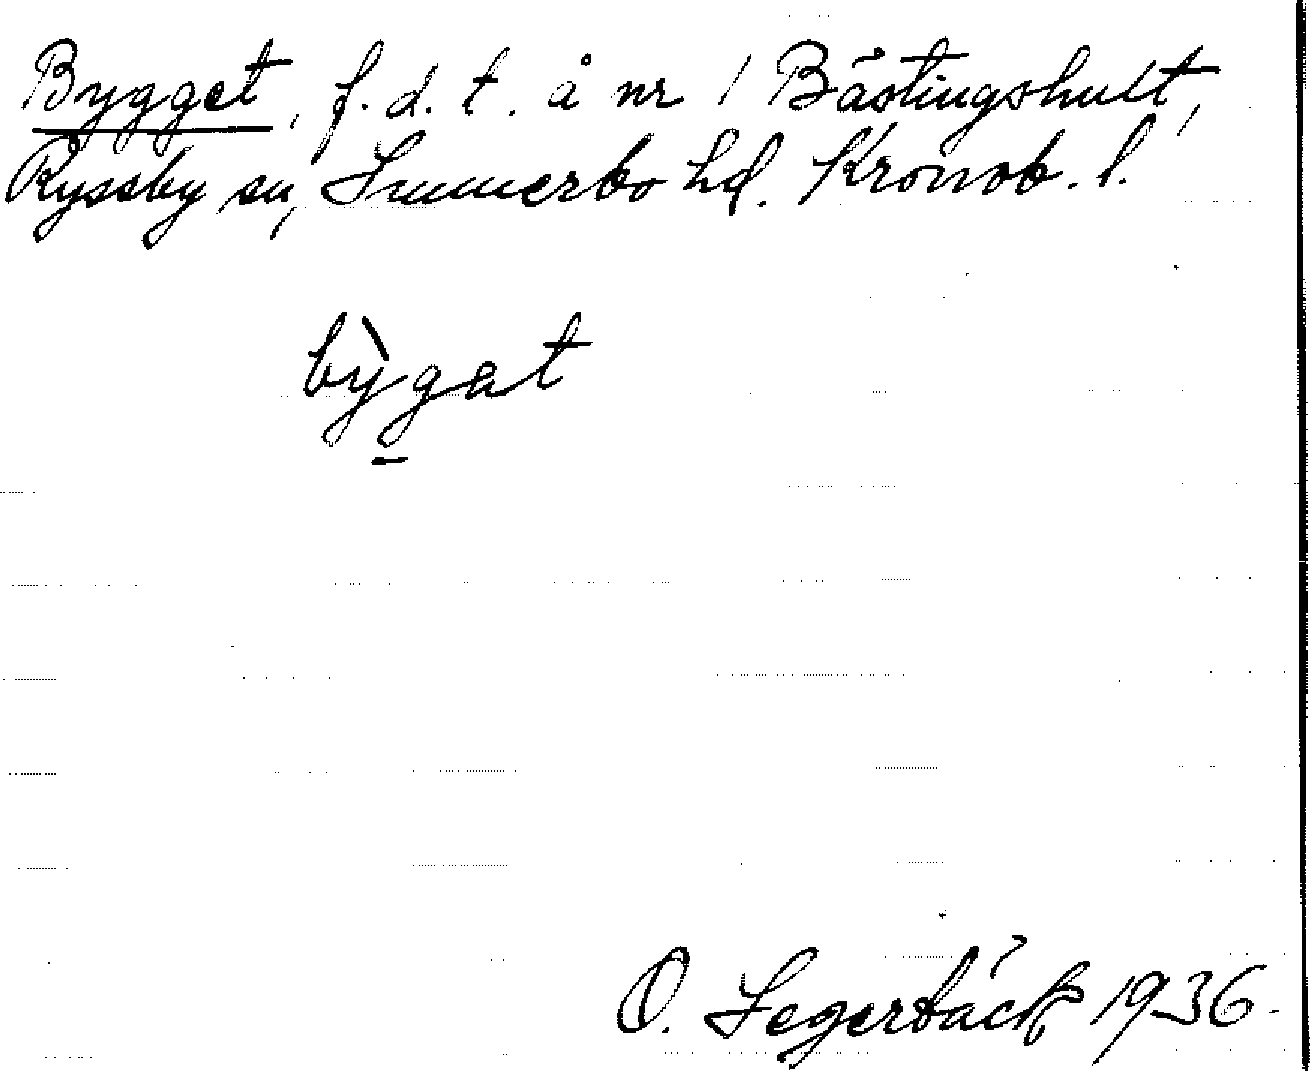 Bygget, f. d. t. å nr 1 Bästingshult,
Ryssby sn, Sunnerbo hd. Kronob. l.
bỳgat
O. Segerbäck 1936.